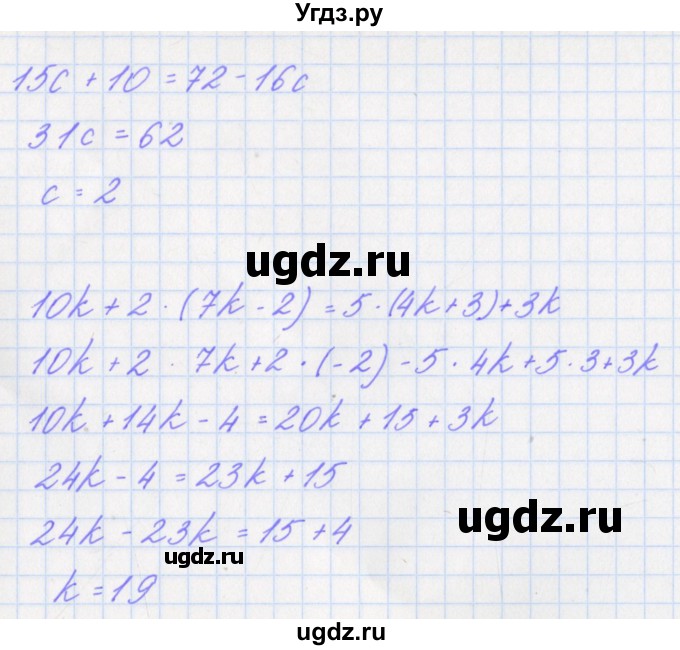 Угдз.ру
15c + 10 = 72 - 16c
31c = 62
c = 2
ugdz.ru
10k + 2 · (7k - 2) = 5 · (4k + 3) + 3k
10k + 2 · 7k + 2 · (-2) - 5 · 4k + 5 · 3 + 3k
10k + 14k - 4 = 20k + 15 + 3k
24k - 4 = 23k + 15
ugdz.ru
24k - 23k = 15 + 4
ugdz.ru
k = 19
ugdz.ru